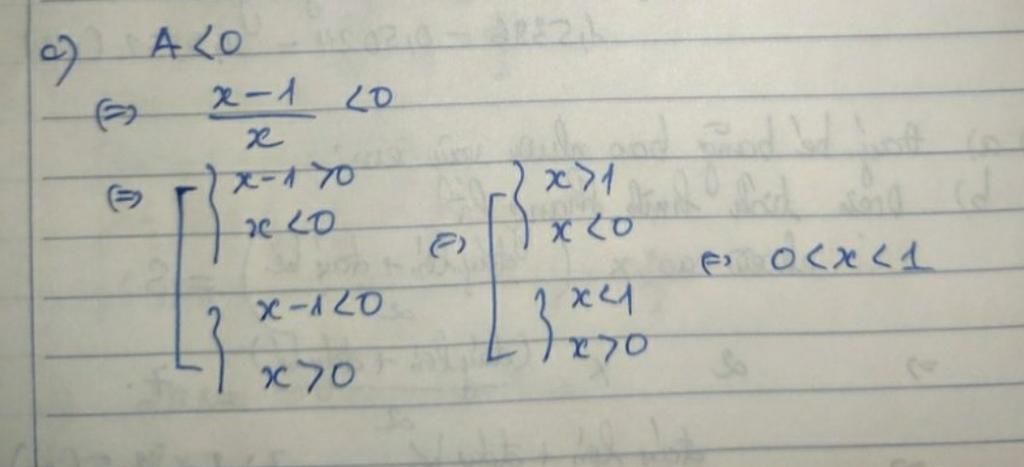 c) A < 0
(=) x - 1 / x < 0
(=) [ { x - 1 > 0
x < 0
{ x - 1 < 0
x > 0
(=) [ { x > 1
x < 0
{ x < 1
x > 0
(=) 0 < x < 1